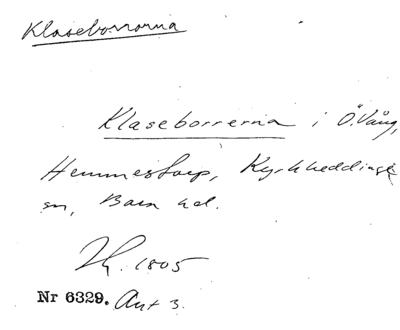 Klaseborrorna
Klaseborrerna i Ö. Vång,
Hemmestorp, Kyrkheddinge
sn, Bara hd.
1805
Nr 6329. Akt 3.